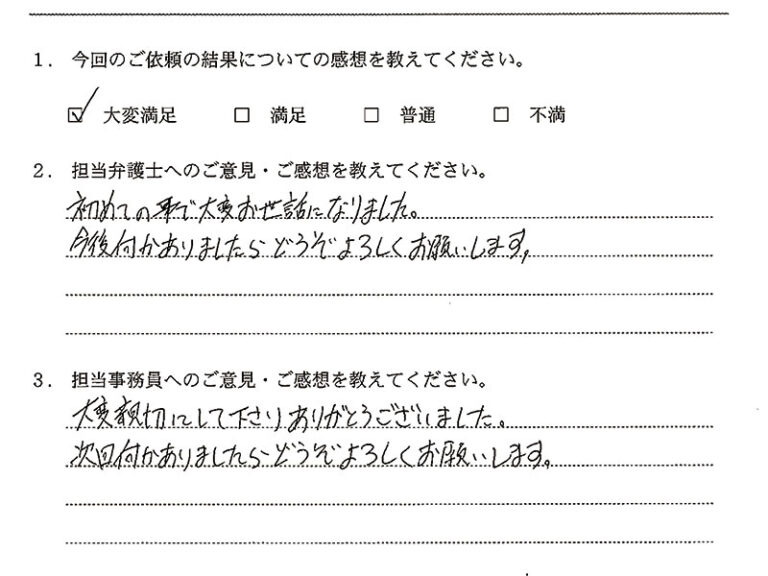 1． 今回のご依頼の結果についての感想を教えてください。
☑ 大変満足 □ 満足 □ 普通 □ 不満
2． 担当弁護士へのご意見・ご感想を教えてください。
初めての事で大変お世話になりました。
今後付かありましたらどうぞよろしくお願いします。
3． 担当事務員へのご意見・ご感想を教えてください。
大変親切にして下さりありがとうございました。
次回付かありましたらどうぞよろしくお願いします。